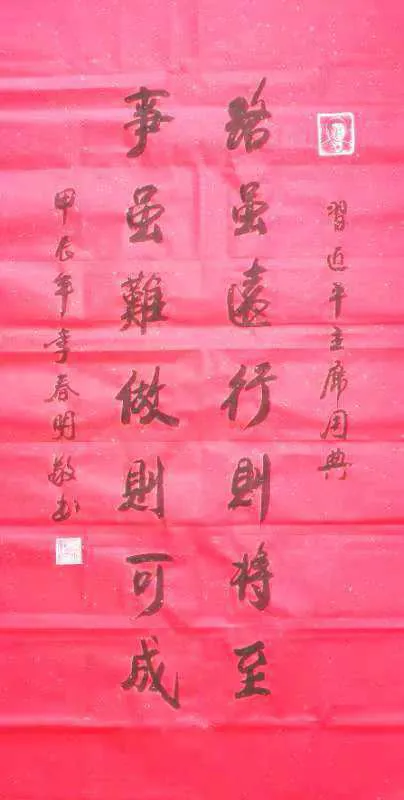 習近平主席用典
路虽遠行則将至
事虽難做則可成
甲辰年李春明敬书